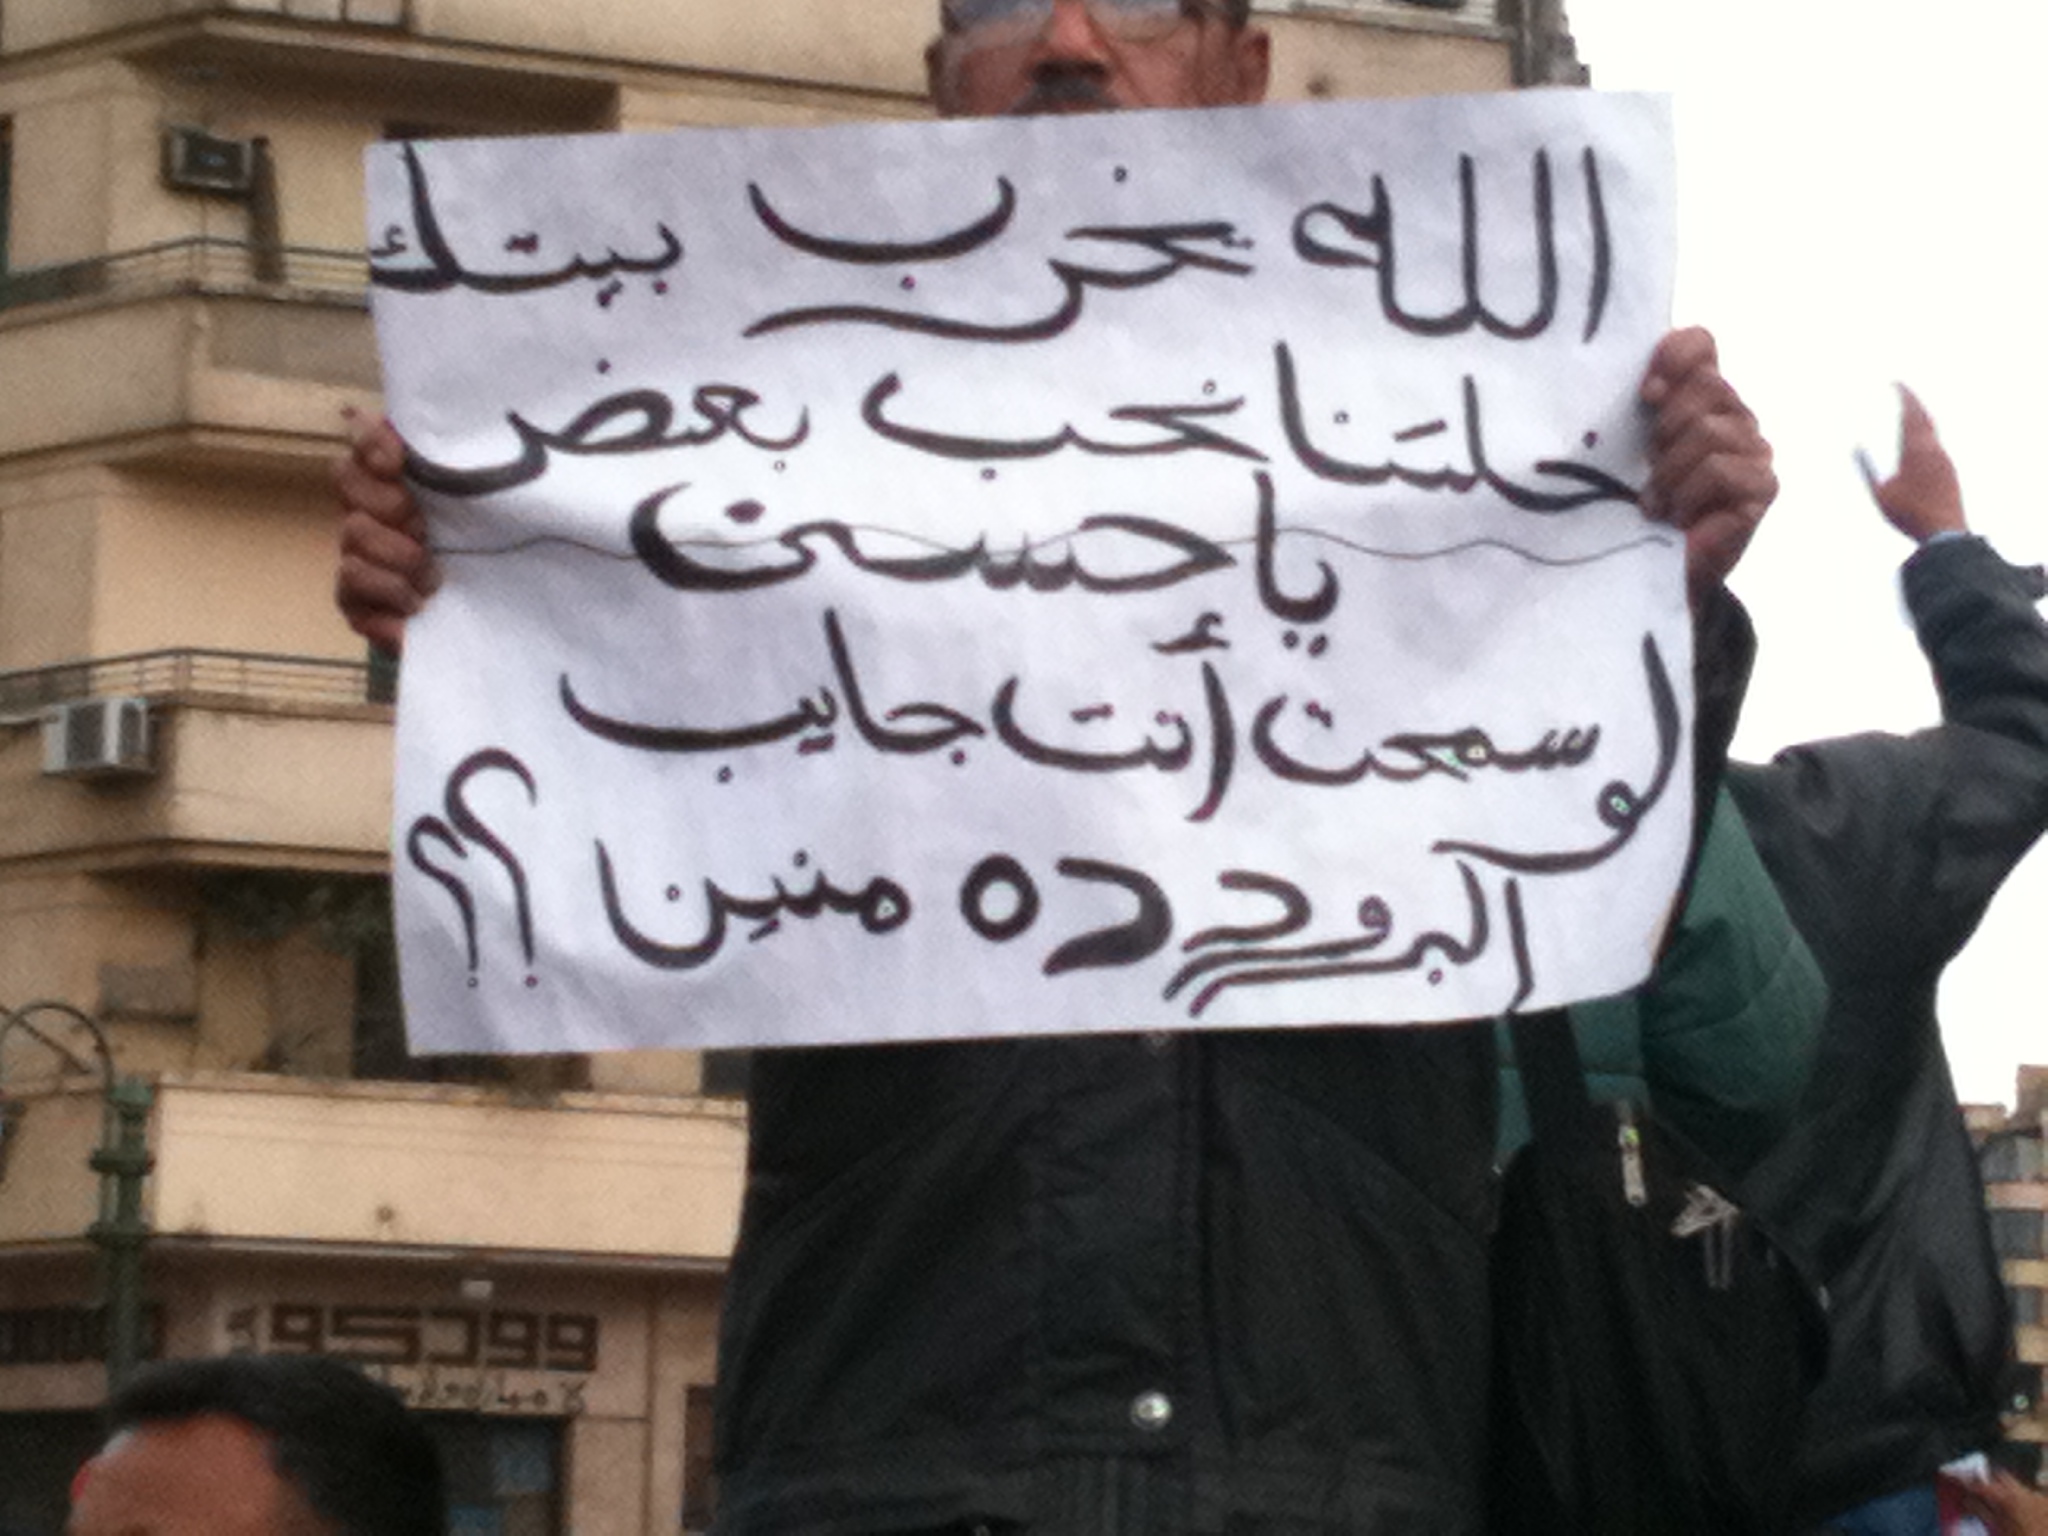 الله يخرب بيتك
خلتنا نحب بعض
يا حسني
لو سمحت أنت جايب
البرود ده منين ؟؟